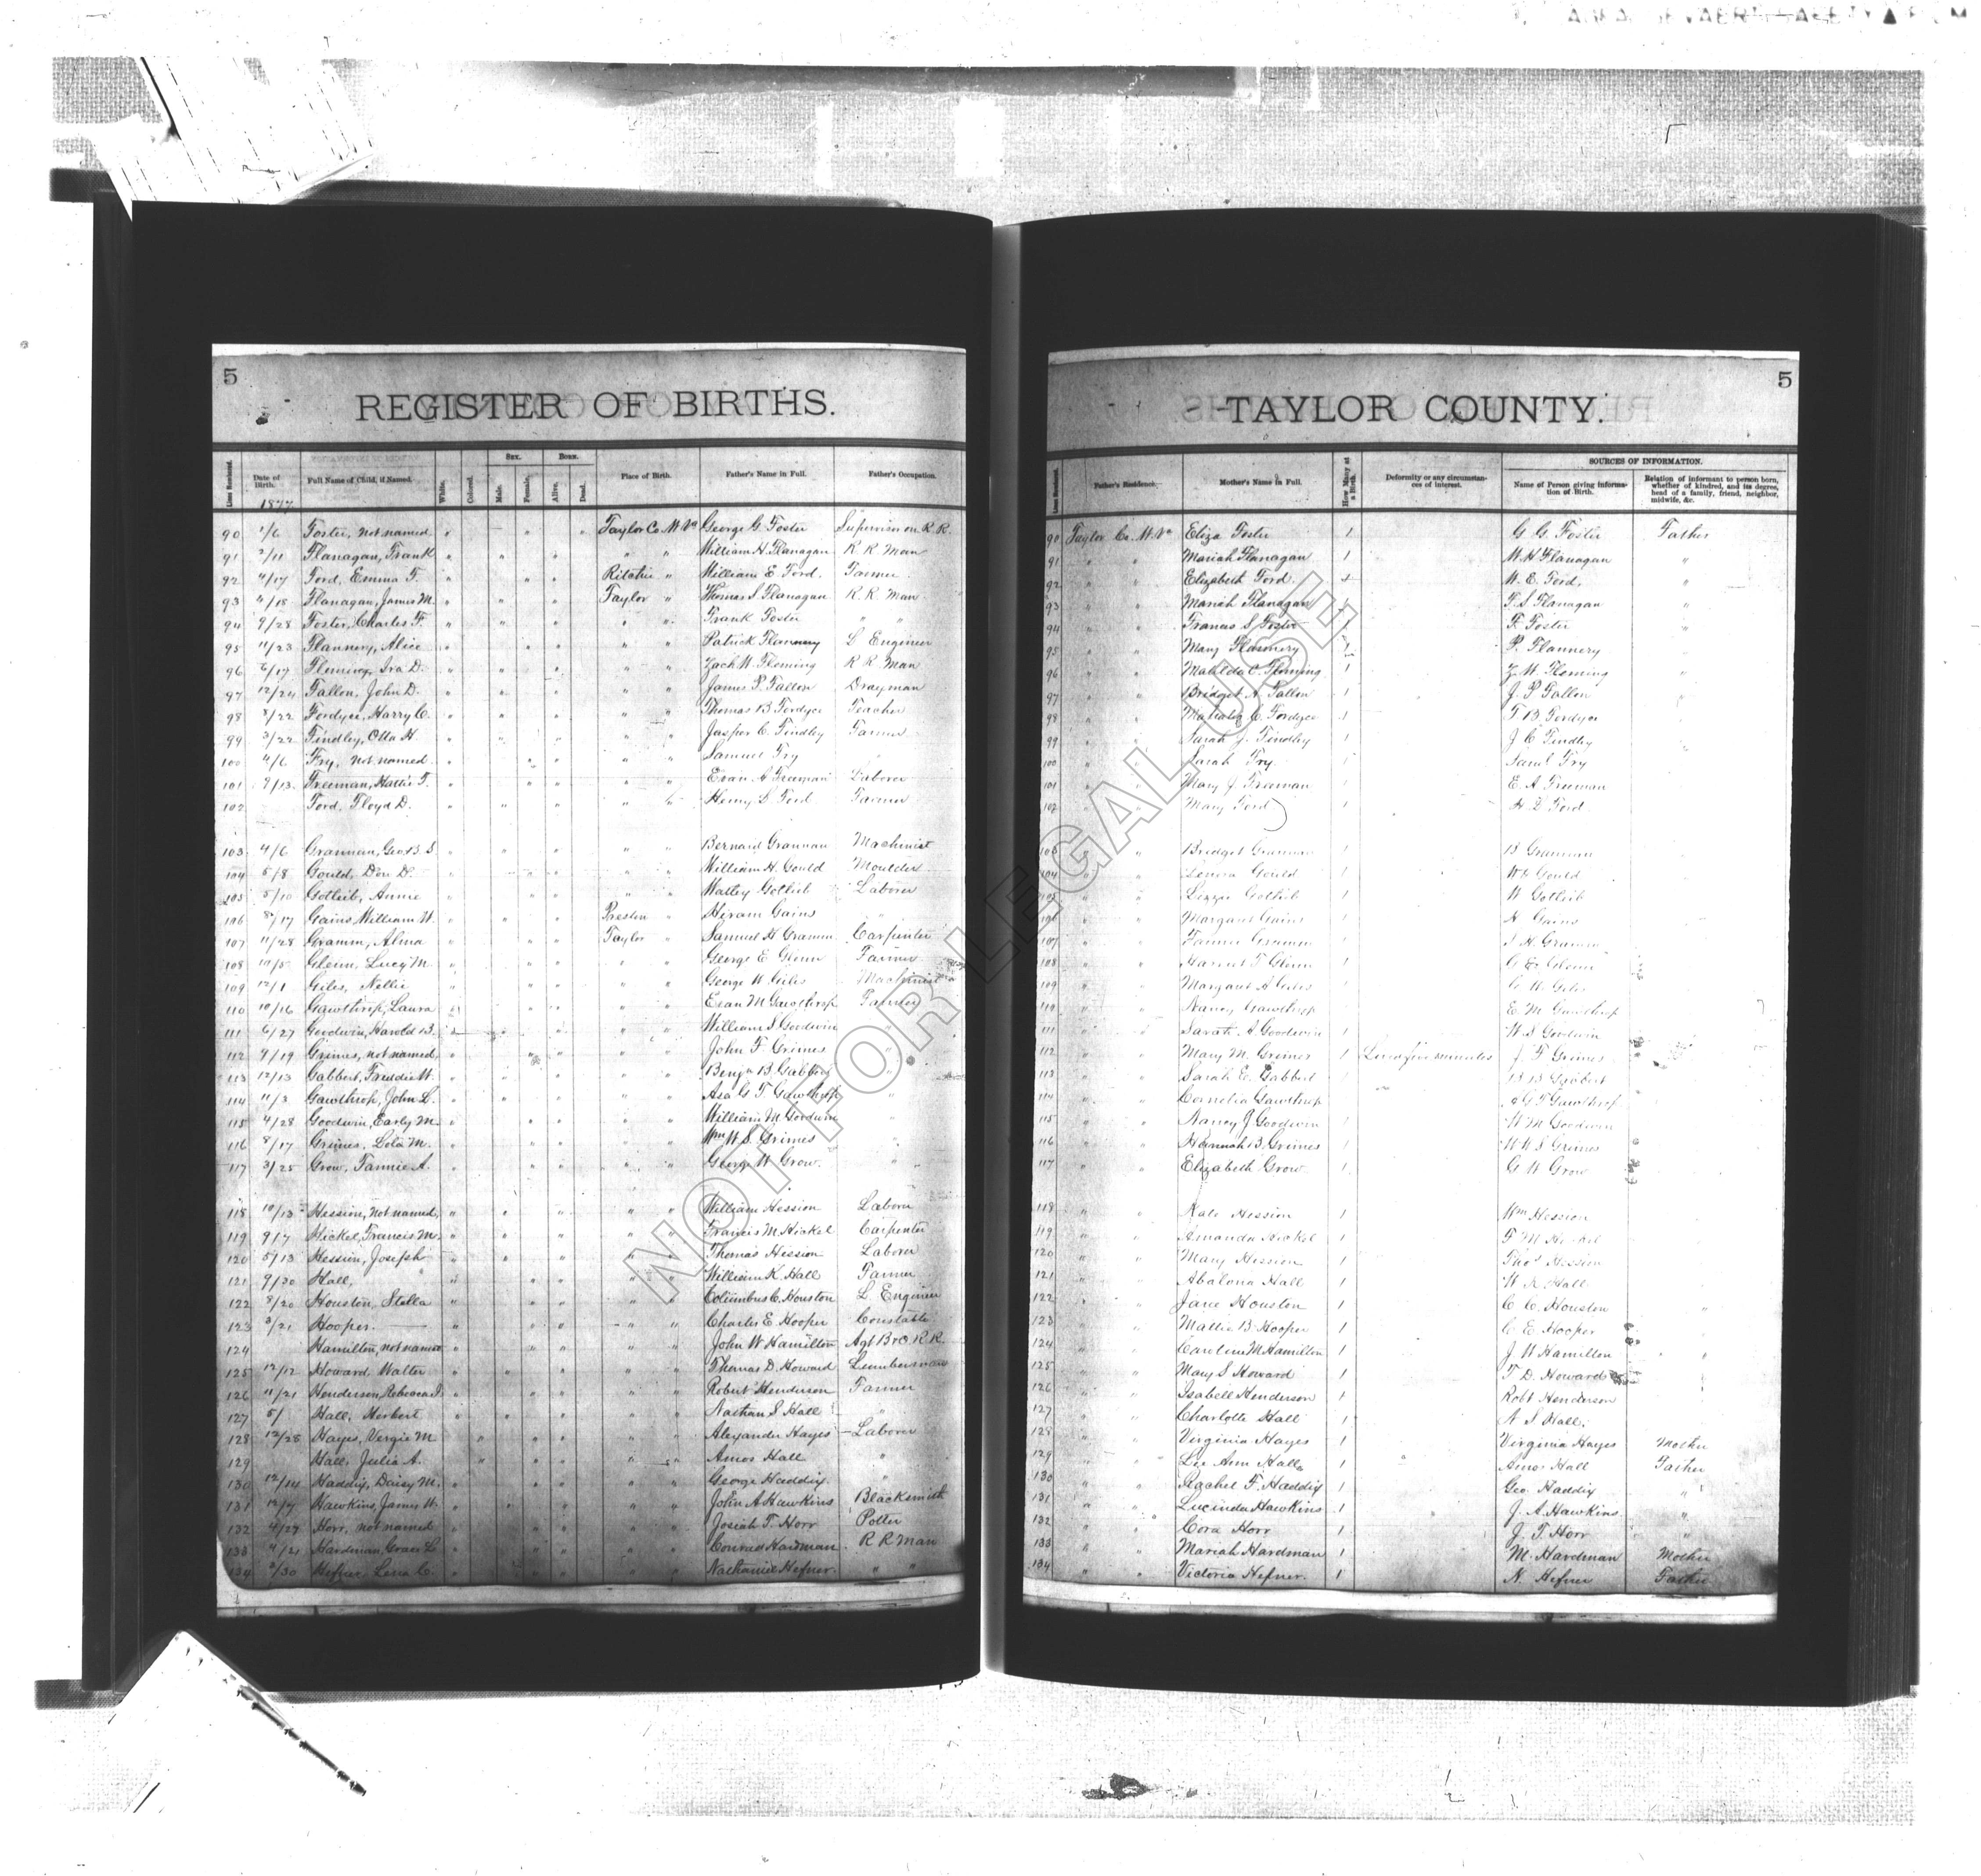 5
REGISTER OF BIRTHS.
Lines Numbered. Date of Birth. Full Name of Child, if Named. White. Colored. Sex. Male. Female. Born. Alive. Dead. Place of Birth. Father's Name in Full. Father's Occupation.
1877
90 1/6 Foster, not named " " " Taylor Co. W. Va George G. Foster Supervisor on R. R.
91 2/11 Flanagan, Frank " " " " " William H. Flanagan R R Man
92 4/17 Ford, Emma F. " " " Ritchie " William E. Ford. Farmer
93 4/18 Flanagan, James M. " " " Taylor " Thomas S. Flanagan R R Man
94 9/28 Foster, Charles F. " " " " " Frank Foster " "
95 11/23 Flannery, Alice " " " " " Patrick Flannery L Engineer
96 6/17 Fleming, Ira D. " " " " " Zach W. Fleming R R Man
97 12/24 Fallon, John D. " " " " " James P. Fallon Drayman
98 8/22 Fordyce, Harry C. " " " " " Thomas B. Fordyce Teacher
99 3/22 Findley, Otta H. " " " " " Jasper C. Findley Farmer
100 4/6 Fry, not named " " " " " Samuel Fry
101 9/13 Freeman, Hattie F. " " " " " Evan A Freeman Laborer
102 Ford, Floyd D. " " " " Henry D Ford Farmer
103 4/6 Grannan, Geo. B. S. " " " " Bernard Grannan Machinist
104 5/8 Gould, Don D. " " " " " William H. Gould Moulder
105 5/10 Gotleib, Annie " " " " " Gotleib Laborer
106 8/17 Gains William W. " " " Preston " Hiram Gains "
107 11/28 Gramm, Alma " " " Taylor " Samuel H. Gramm Carpenter
108 Glenn, Lucy M. " " " " " George E Glenn Farmer
109 12/1 Giles, Nellie " " " " " George W Giles Machinist
110 10/16 Gawthrop, Laura " " " " " Evan M Gawthrop Farmer
111 6/27 Goodwin, Harold B. " " " " " William S Goodwin "
112 9/19 Grimes, not named, " " " " " John F Grimes "
113 12/13 Gabbert, Freddie W. " " " " " Benj. B. Gabbert "
114 11/2 Gawthrop, John L. " " " " " Asa G. T. Gawthrop "
115 4/28 Goodwin, Early M. " " " " " William M. Goodwin "
116 8/17 Grimes, Lola M. " " " " " Wm W. S. Grimes "
117 3/25 Grow, Fannie A. " " " " " George W Grow. "
118 10/13 Hession, not named, " " " " " William Hession Laborer
119 9/7 Hickel, Francis M. " " " " " Francis M. Hickel Carpenter
120 5/13 Hession, Joseph " " " " " Thomas Hession Laborer
121 9/30 Hall, " " " " " William K. Hall Farmer
122 8/20 Houston, Stella " " " " " Columbus C. Houston L. Engineer
123 3/21 Hooper. " " " " " Charles E. Hooper Constable
124 Hamilton, not named " " " " " John W Hamilton Agt B & O R.R.
125 12/12 Howard Walter " " " " " Thomas D. Howard Lumberman
126 11/21 Henderson, Rebecca J. " " " " " Robert Henderson Farmer
127 5/ Hall, Herbert " " " " " Nathan S. Hall "
128 12/28 Hayes, Vergie M " " " " " Alexander Hayes Laborer
129 Hall, Julia A. " " " " " Amos Hall "
130 12/14 Haddix, Daisy M. " " " " " George Haddix "
131 12/7 Hawkins, James W. " " " " " John A Hawkins Blacksmith
132 4/27 Horr, not named " " " " " Josiah T. Horr Potter
133 4/21 Hardman, Grace L. " " " " " Conrad Hardman R R Man
134 2/30 Hefner, Lena C. " " " " " Nathaniel Hefner. " "
5
TAYLOR COUNTY.
Lines Numbered. Father's Residence. Mother's Name in Full. How Many at a Birth. Deformity or any circumstances of interest. SOURCES OF INFORMATION. Name of Person giving information of Birth. Relation of informant to person born, whether of kindred, and its degree, head of a family, friend, neighbor, midwife, &c.
90 Taylor Co. W. Va Eliza Foster 1 G. G. Foster Father
91 " " Mariah Flanagan 1 W. H. Flanagan "
92 " " Elizabeth Ford 1 W. E. Ford, "
93 " " Mariah Flanagan 1 T. S. Flanagan "
94 " " Frances S. Foster 1 F. Foster "
95 " " Mary Flannery 1 P. Flannery "
96 " " Matilda C. Fleming 1 Z. W. Fleming "
97 " " Bridget A. Fallon 1 J. P. Fallon "
98 " " Fordyce 1 T. B. Fordyce
99 " " Sarah J. Findley 1 J C Findley
100 " " Sarah Fry 1 Saml Fry
101 " " Mary J Freeman 1 E. A Freeman
102 " " Mary Ford 1 H. D. Ford
103 " " Bridget Grannan 1 B Grannan
104 " " Lenora Gould 1 Gould
105 " " Lizzie Gotleib 1 W Gotleib
106 " " Margaret Gains 1 H Gains
107 " " Fannie Gramm 1 S H. Gramm
108 " " Harriet F. Glenn 1 G. E. Glenn
109 " " Margaret A Giles 1 G. W. Giles
110 " " Nancy Gawthrop 1 E. M. Gawthrop
111 " " Sarah A Goodwin 1 W. S Goodwin
112 " " Mary M. Grimes 1 Lived five minutes J. F Grimes
113 " " Sarah E. Gabbert 1 B B Gabbert
114 " " Cornelia Gawthrop A G T Gawthrop
115 " " Nancy J Goodwin 1 W M Goodwin
116 " " Hannah B. Grimes 1 W W S Grimes
117 " " Elizabeth Grow. 1 G W Grow
118 " " Kate Hession 1 Wm Hession
119 " " Amanda Hickel 1 F M Hickel
120 " " Mary Hession 1 Thos Hession
121 " " Abalona Hall 1 W K Hall
122 " " Jane Houston 1 C C. Houston "
123 " " Mattie B Hooper 1 C E Hooper
124 " " Caroline M Hamilton 1 J W Hamilton "
125 " " Mary S Howard 1 T D. Howard
126 " " Isabell Henderson 1 Robt Henderson
127 " " Charlotte Hall 1 N S Hall.
128 " " Virginia Hayes 1 Virginia Hayes Mother
129 " " Lee Ann Hall 1 Amos Hall Father
130 " " Rachel F. Haddix 1 Geo. Haddix "
131 " " Lucinda Hawkins 1 J. A. Hawkins "
132 " " Cora Horr 1 J. T. Horr "
133 " " Mariah Hardman 1 M. Hardman Mother
134 " " Victoria Hefner. 1 N. Hefner Father
NOT FOR LEGAL USE